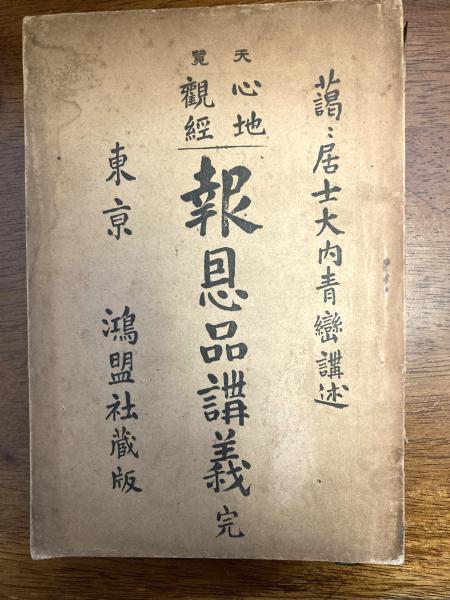 藹〻居士大内青巒講述
天覧
心地
觀經
報恩品講義 完
東京 鴻盟社蔵版